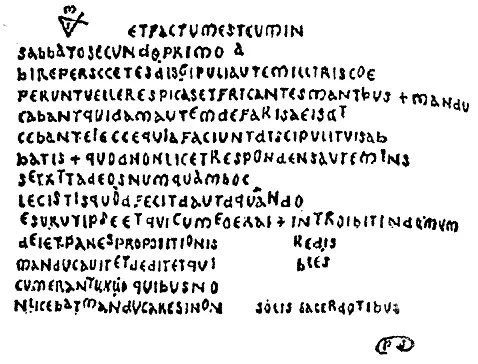 ETFACTUMESTEUMIN
SABBATOSECUNdOPRIMO a
bIREPERSCCETESdISCIPULIAUTEMILLIRISCOE
PERUNTUELLERESPICASETFRICANTESMANIBUS + MANdU
CABANTQUIdAMAUTEMdEFARISAEISdT
CEBANTEIECCEQUIAFACIUNTdISCIPULITUISAb
bATIS + QUOdNONLICETRESPONdENSAUTEMINS
SETXTTAdEOSNUMQUAMbOC
LECISTISQUOdFECITdAUTdQUANdO
ESURUTIPSEETQUICUMEOERAI + INTROIBITINdOMUM
dEIETPANESPROPOSITIONIS REdIS
MANdUCAUITETdEdITETQUI bLES
CUMERANTUXUO QUIBUSNO
NLICEBATMANdUCARESINON SOLIS SACERdOTIBUS
PS